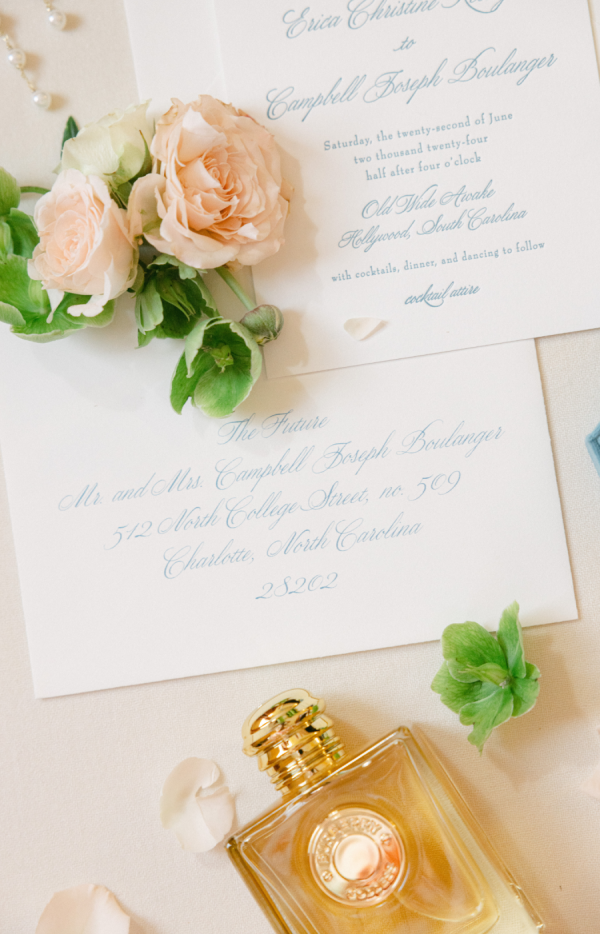 Erica Christine
to
Campbell Joseph Boulanger
Saturday, the twenty-second of June
two thousand twenty-four
half after four o'clock
Old Wide Awake
Hollywood, South Carolina
with cocktails, dinner, and dancing to follow
cocktail attire
The Future
Mr. and Mrs. Campbell Joseph Boulanger
512 North College Street, no. 509
Charlotte, North Carolina
28202
BURBERRY
GODDESS